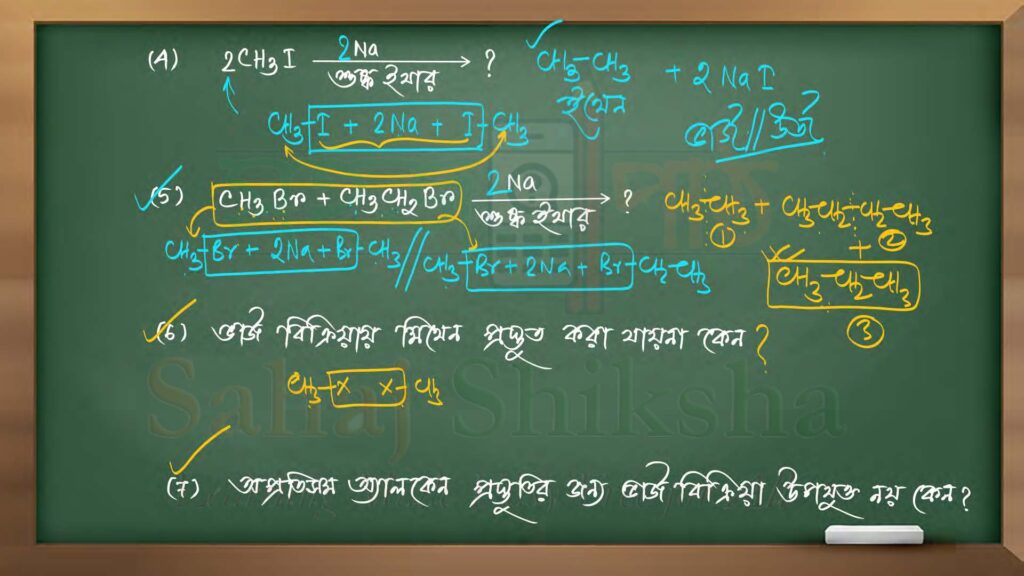 (4) 2CH3I 2Na শুষ্ক ইথার ? CH3-CH3 + 2NaI
ইথেন
CH3-I + 2Na + I-CH3
(5) CH3Br + CH3CH2Br 2Na শুষ্ক ইথার ? CH3-CH3 + CH3-CH2-CH2-CH3
① ②
+
CH3-Br + 2Na + Br-CH3 // CH3-Br + 2Na + Br-CH2-CH3
CH3-CH2-CH3
③
(6) ভার্জ বিক্রিয়ায় মিথেন প্রস্তুত করা যায়না কেন?
CH3-X X-CH3
Sahaj Shiksha
(7) অপ্রতিসম অ্যালকেন প্রস্তুতির জন্য ভার্জ বিক্রিয়া উপযুক্ত নয় কেন?